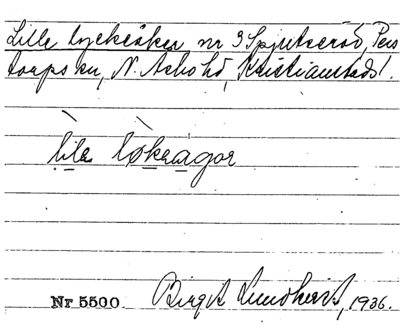 Lille lyckeåker nr 3 Spjutseröd, Pers
torps sn, N. Åsbo hd, Kristianstads l.
lìla lø̀kaågor
Nr 5500 Birgit Lundkvist, 1936.